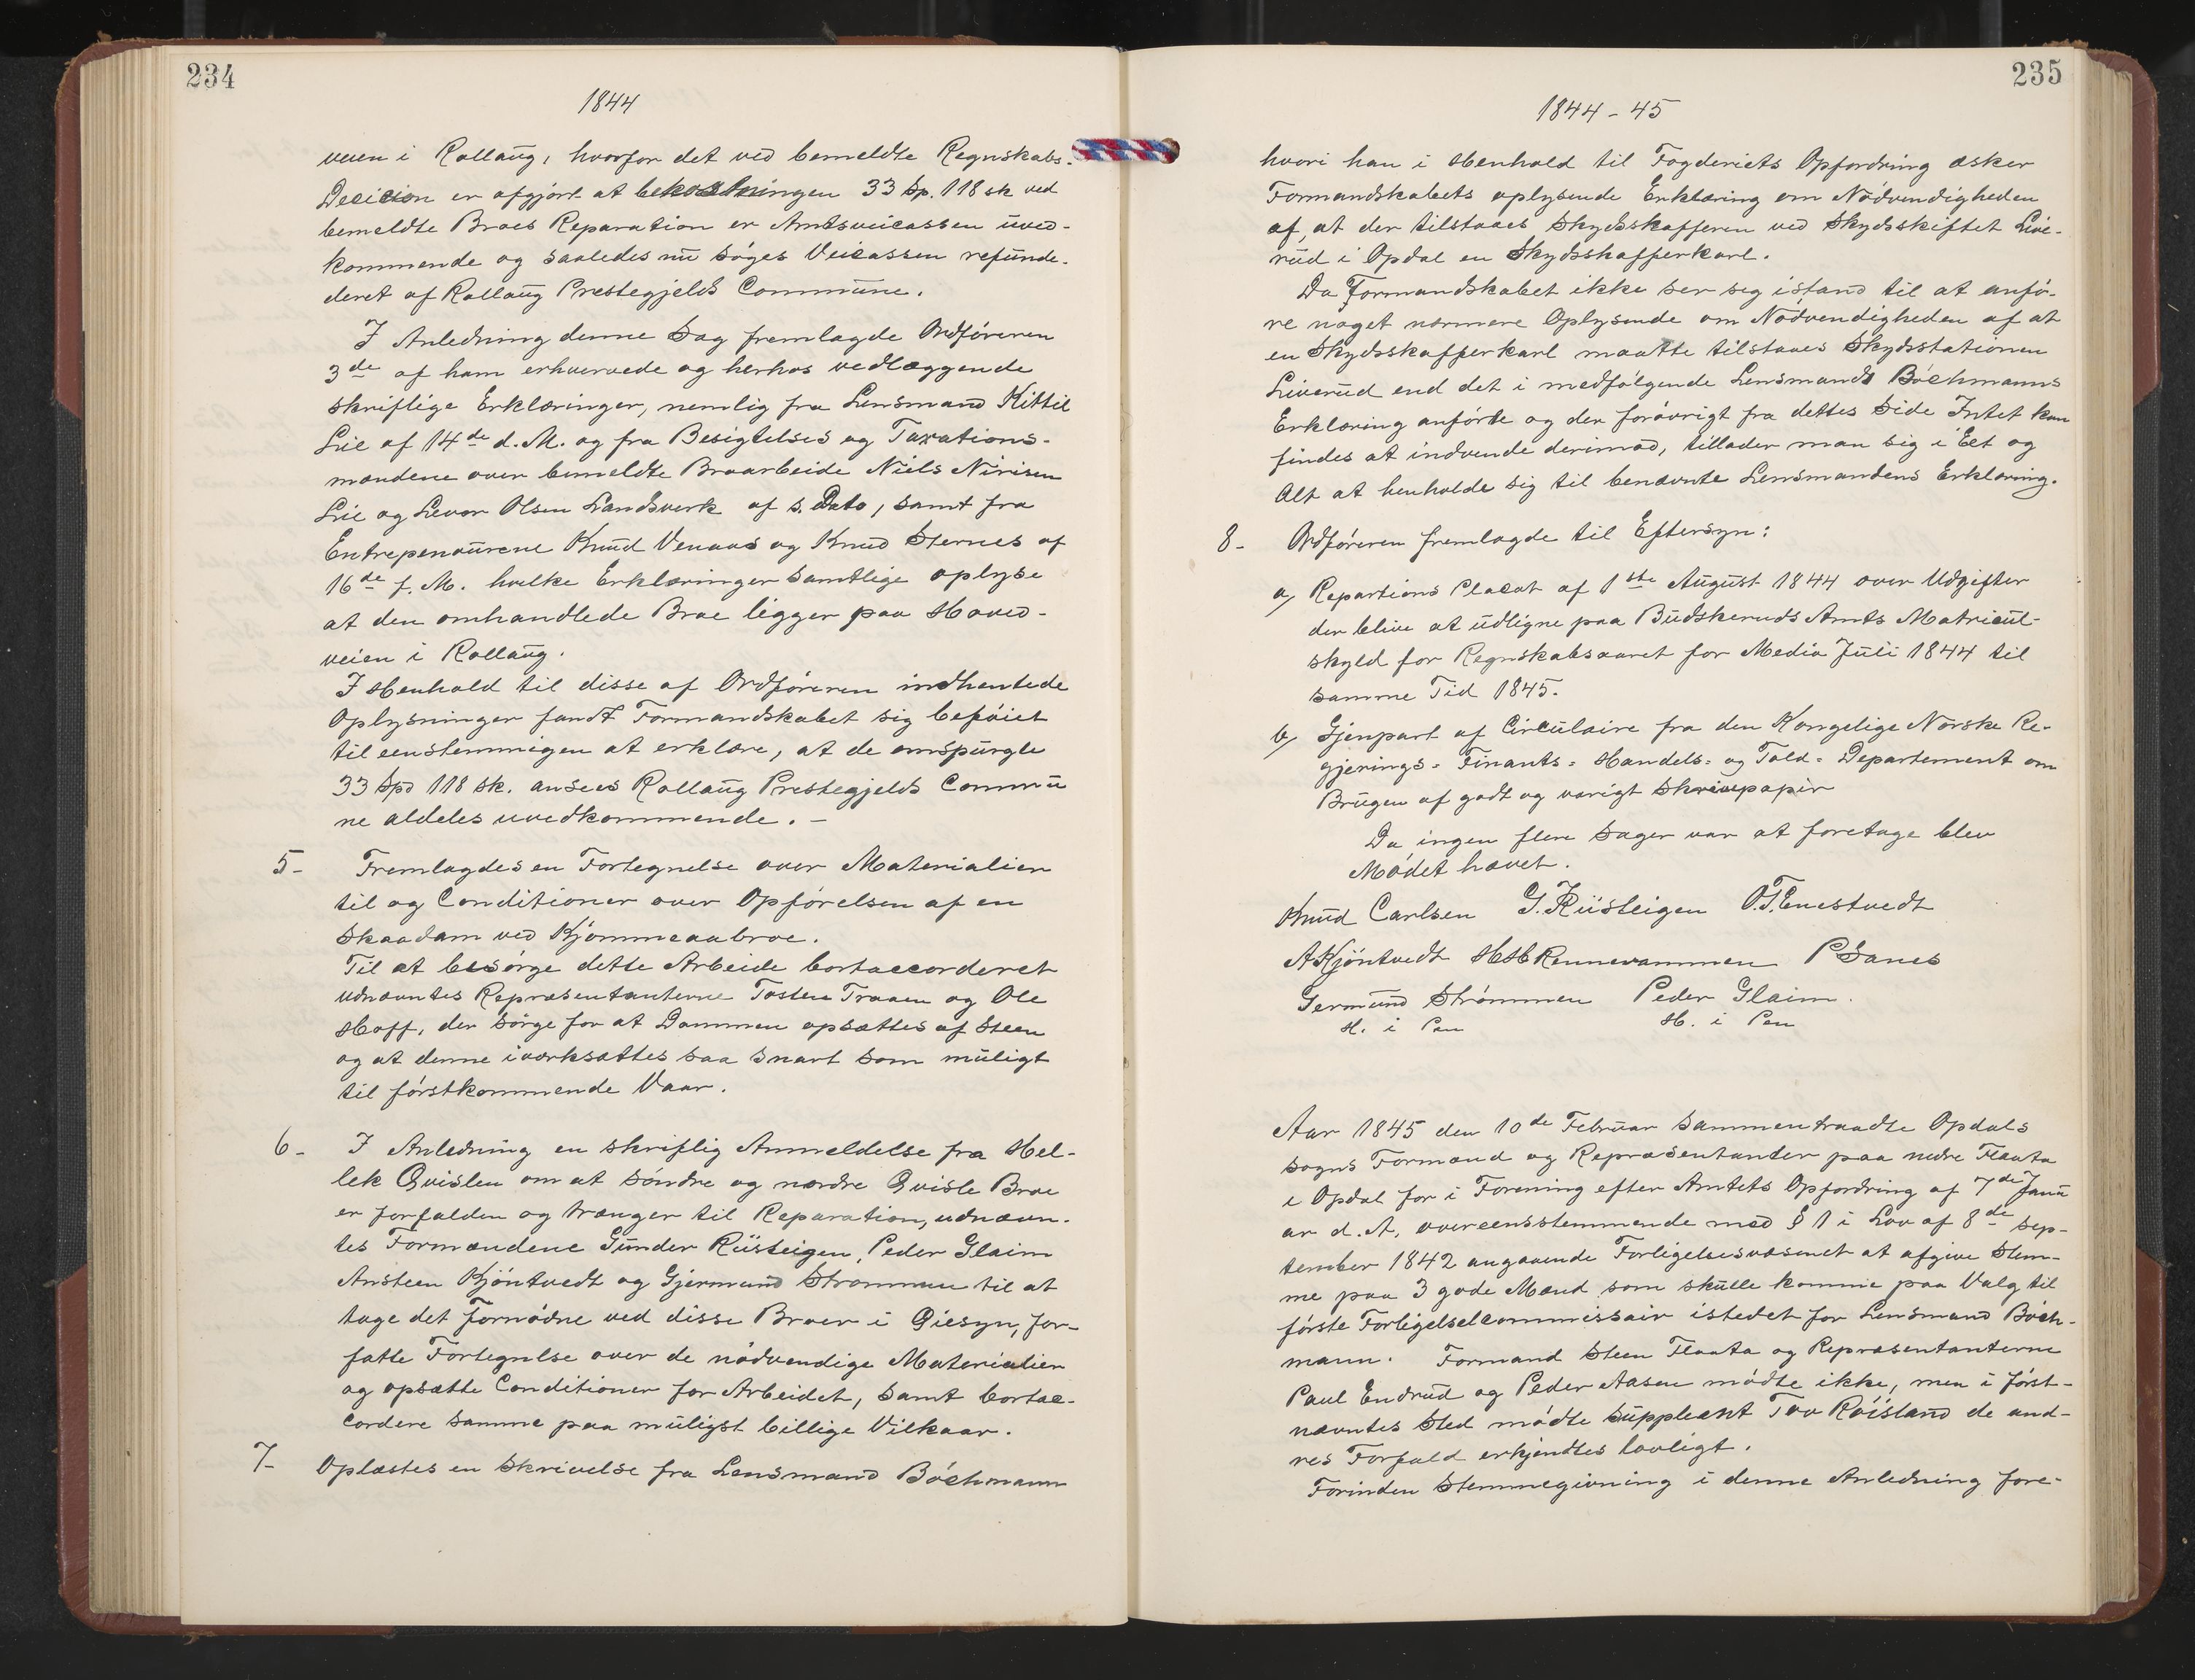 234
1844
veien i Rollaug, hvorfor det ved bemeldte Regnskabs-
Decision er afgjort at bekostningen 33 Sp. 118 sk ved
bemeldte Broes Reparation er Amtsveicassen uved-
kommende og saaledes nu søges Veicassen refunde-
deret af Rollaug Prestegjelds Commune.
I Anledning denne Sag fremlagde Ordføreren
3de af ham erhvervede og herhos vedlæggende
skriftlige Erklæringer, nemlig fra Lensmand Kittil
Lie af 14de d. M. og fra Besigtelses og Taxations-
mændene over bemeldte Broarbeide Niels Nirisen
Lie og Levor Olsen Landsverk af s. Dato, samt fra
Entrepenøurene Knud Venaas og Knud Sternes af
16de f. M. hvilke Erklæringer samtlige oplyse
at den omhandlede Broe ligger paa Hoved-
veien i Rollaug.
I Henhold til disse af Ordføreren indhentede
Oplysninger fandt Formandskabet sig beføiet
til eenstemmigen at erklære, at de omspurgte
33 Spd 118 sk. ansees Rollaug Prestegjelds Commu
ne aldeles uvedkommende. –
5- Fremlagdes en Fortegnelse over Materialier
til og Conditioner over Opførelsen af en
Skaadam ved Kjømmeaabroe.
Til at besørge dette Arbeide bortaccorderet
udnævntes Repræsentanterne Tosten Traaen og Ole
Hoff, der sørge for at Dammen opsættes af Steen
og at denne iværksættes saa snart som muligt
til førstkommende Vaar.
6- I Anledning en skriftlig Anmeldelse fra Hel-
lek Qvislen om at søndre og nordre Qvisle Broe
er forfalden og trænger til Reparation, udnævn-
tes Formændene Gunder Rüsteigen, Peder Glaim
Ansteen Kjøntvedt og Gjermund Strømmen til at
tage det fornødne ved disse Broer i Øiesyn, for-
fatte Fortegnelse over de nødvendige Materialier
og opsætte Conditioner for Arbeidet, samt bortac-
cordere samme paa muligst billige Vilkaar.
7- Oplæstes en Skrivelse fra Lensmand Bóchmann
235
1844-45
hvori han i Henhold til Fogderiets Opfordring æsker
Formandskabets oplysende Erklæring om Nødvendigheden
af, at der tilstaaes Skydsskafferen ved Skydsskiftet Live-
rud i Opdal en Skydsskafferkarl.
Da Formandskabet ikke ser sig istand til at anfø-
re noget nærmere Oplysende om Nødvendigheden af at
en Skydsskafferkarl maatte tilstaaes Skydsstationen
Liverud end det i medfølgende Lensmands Bóchmanns
Erklæring anførte og der forøvrigt fra dettes Side Intet kan
findes at indvende derimod, tillader man sig i Eet og
Alt at henholde sig til benævnte Lensmandens Erklæring.
8- Ordføreren fremlagde til Eftersyn:
a, Repartions Placat af 1ste August 1844 over Udgifter
der blive at udligne paa Budskeruds Amts Matricul-
skyld for Regnskabsaaret for Media Juli 1844 til
samme Tid 1845.
b, Gjenpart af Circulaire fra den Kongelige Norske Re-
gjerings- Finants- Handels- og Told- Departement om
Brugen af godt og varigt Skrivpapir
Da ingen flere Sager var at foretage blev
Mødet hævet.
Knud Carlsen G. Rüsteigen O.T. Enestvedt
A Kjöntvedt H H Rennevammen P Sanes
Germund Strømmen Peder Glaim.
H. i Pen H. i Pen
Aar 1845 den 10de Februar sammentraadte Opdals
Sogns Formænd og Repræsentander paa nedre Flaata
i Opdal for i Forening efter Amtets Opfordring af 7de Janu
ar d. A. overeensstemmende med § 1 i Lov af 8de Sep-
tember 1842 angaaende Forligelsesvæsenet at afgive Stem-
me paa 3 gode Mænd som skulle komme paa Valg til
første Forligelsescommissair istedet for Lensmand Bóch-
mann. Formand Steen Flaata og Repræsentanterne
Paul Endrud og Peder Aasen mødte ikke, men i først-
nævntes Sted mødte Suppleant Tov Róisland de and-
res Forfald erkjendtes lovligt.
Forinden Stemmegivning i denne Anledning fore-